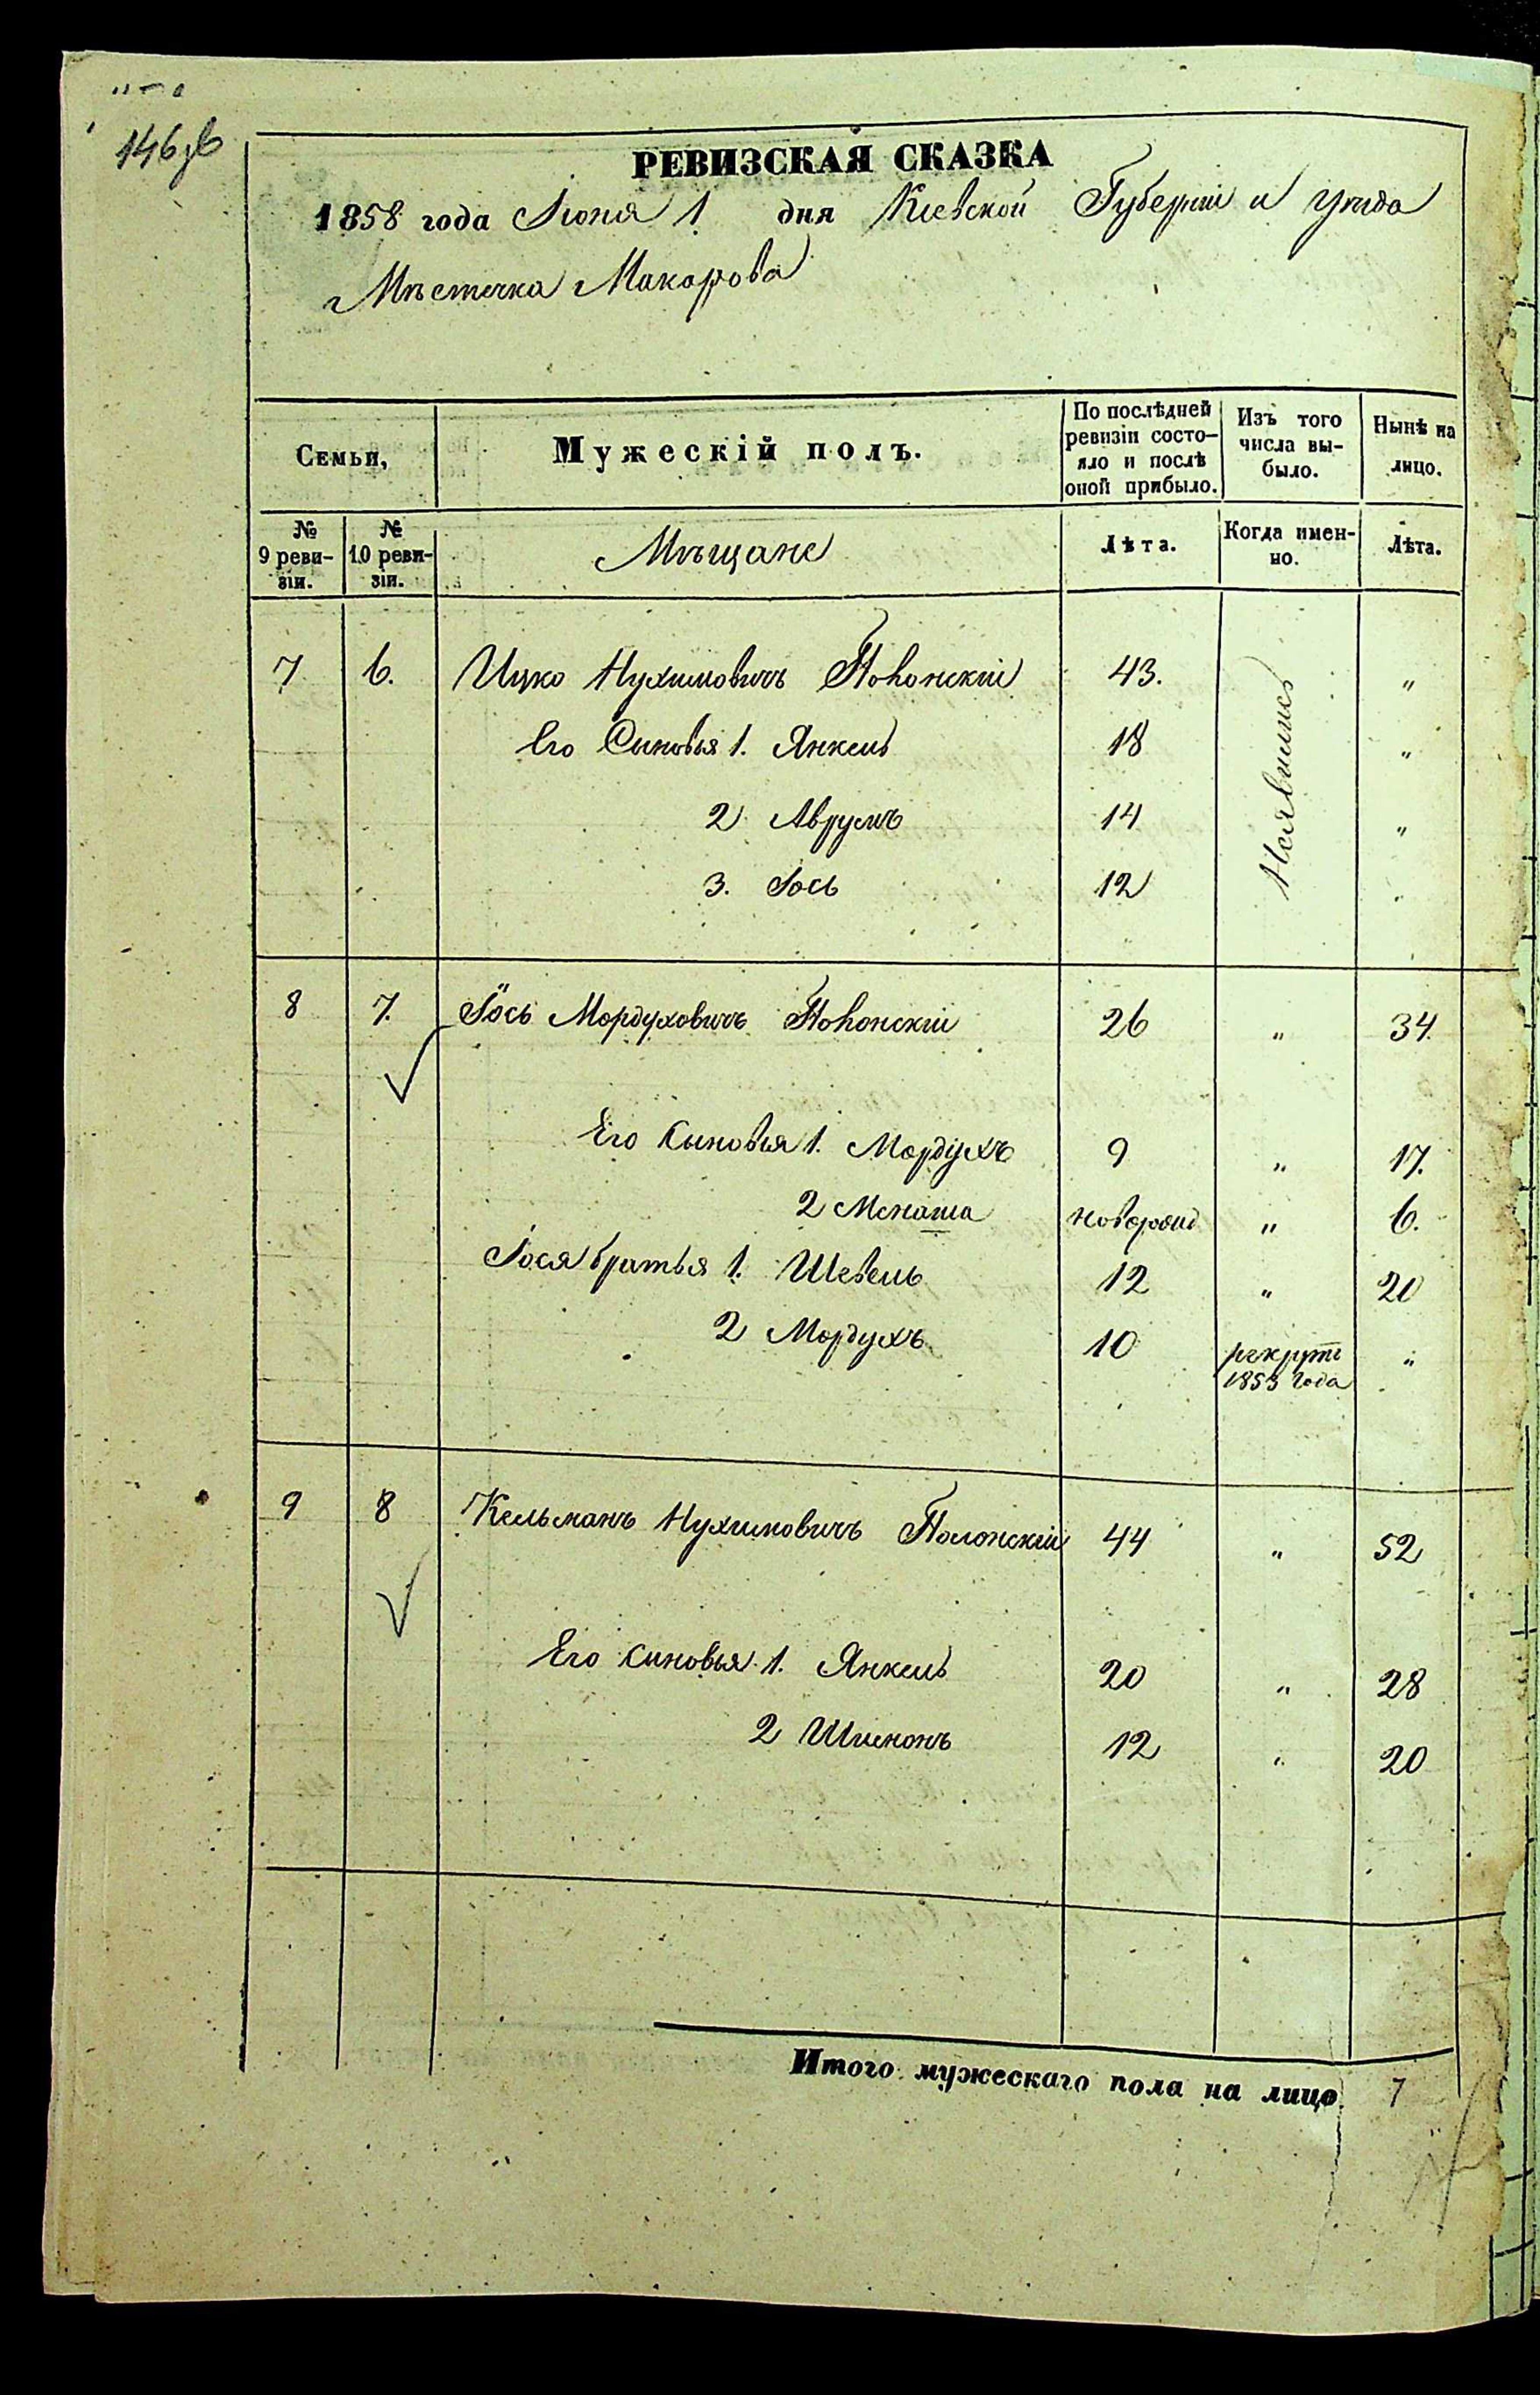 146 зв
РЕВИЗСКАЯ СКАЗКА
1858 года Іюня 1 дня Кіевской Губерніи и уѣзда
Мѣстечка Макарова
Семьи,
Мужескій полъ.
По послѣдней ревизіи состо-
яло и послѣ оной прибыло.
Изъ того числа вы-
было.
Нынѣ на лицо.
№ 9 реви-
зіи.
№ 10 реви-
зіи.
Мѣщане
Лѣта.
Когда имен-
но.
Лѣта.
7 6. Ицко Нухимовичъ Поһонскій 43. Неявились "
Его Сыновья 1. Янкель 18 "
2 Аврумъ 14 "
3. Іось 12 "
8 7. Іось Мордуховичъ Поһонскій 26 " 34.
Его Сыновья 1. Мордухъ 9 " 17.
2 Менаша новорожд " 6.
Іося братья 1. Шевель 12 " 20
2 Мордухъ 10 рекрутъ "
1853 года
9 8 Кельманъ Нухимовичъ Полонскій 44 " 52
Его сыновья 1. Янкель 20 " 28
2 Шимонъ 12 " 20
Итого мужескаго пола на лицо. 7